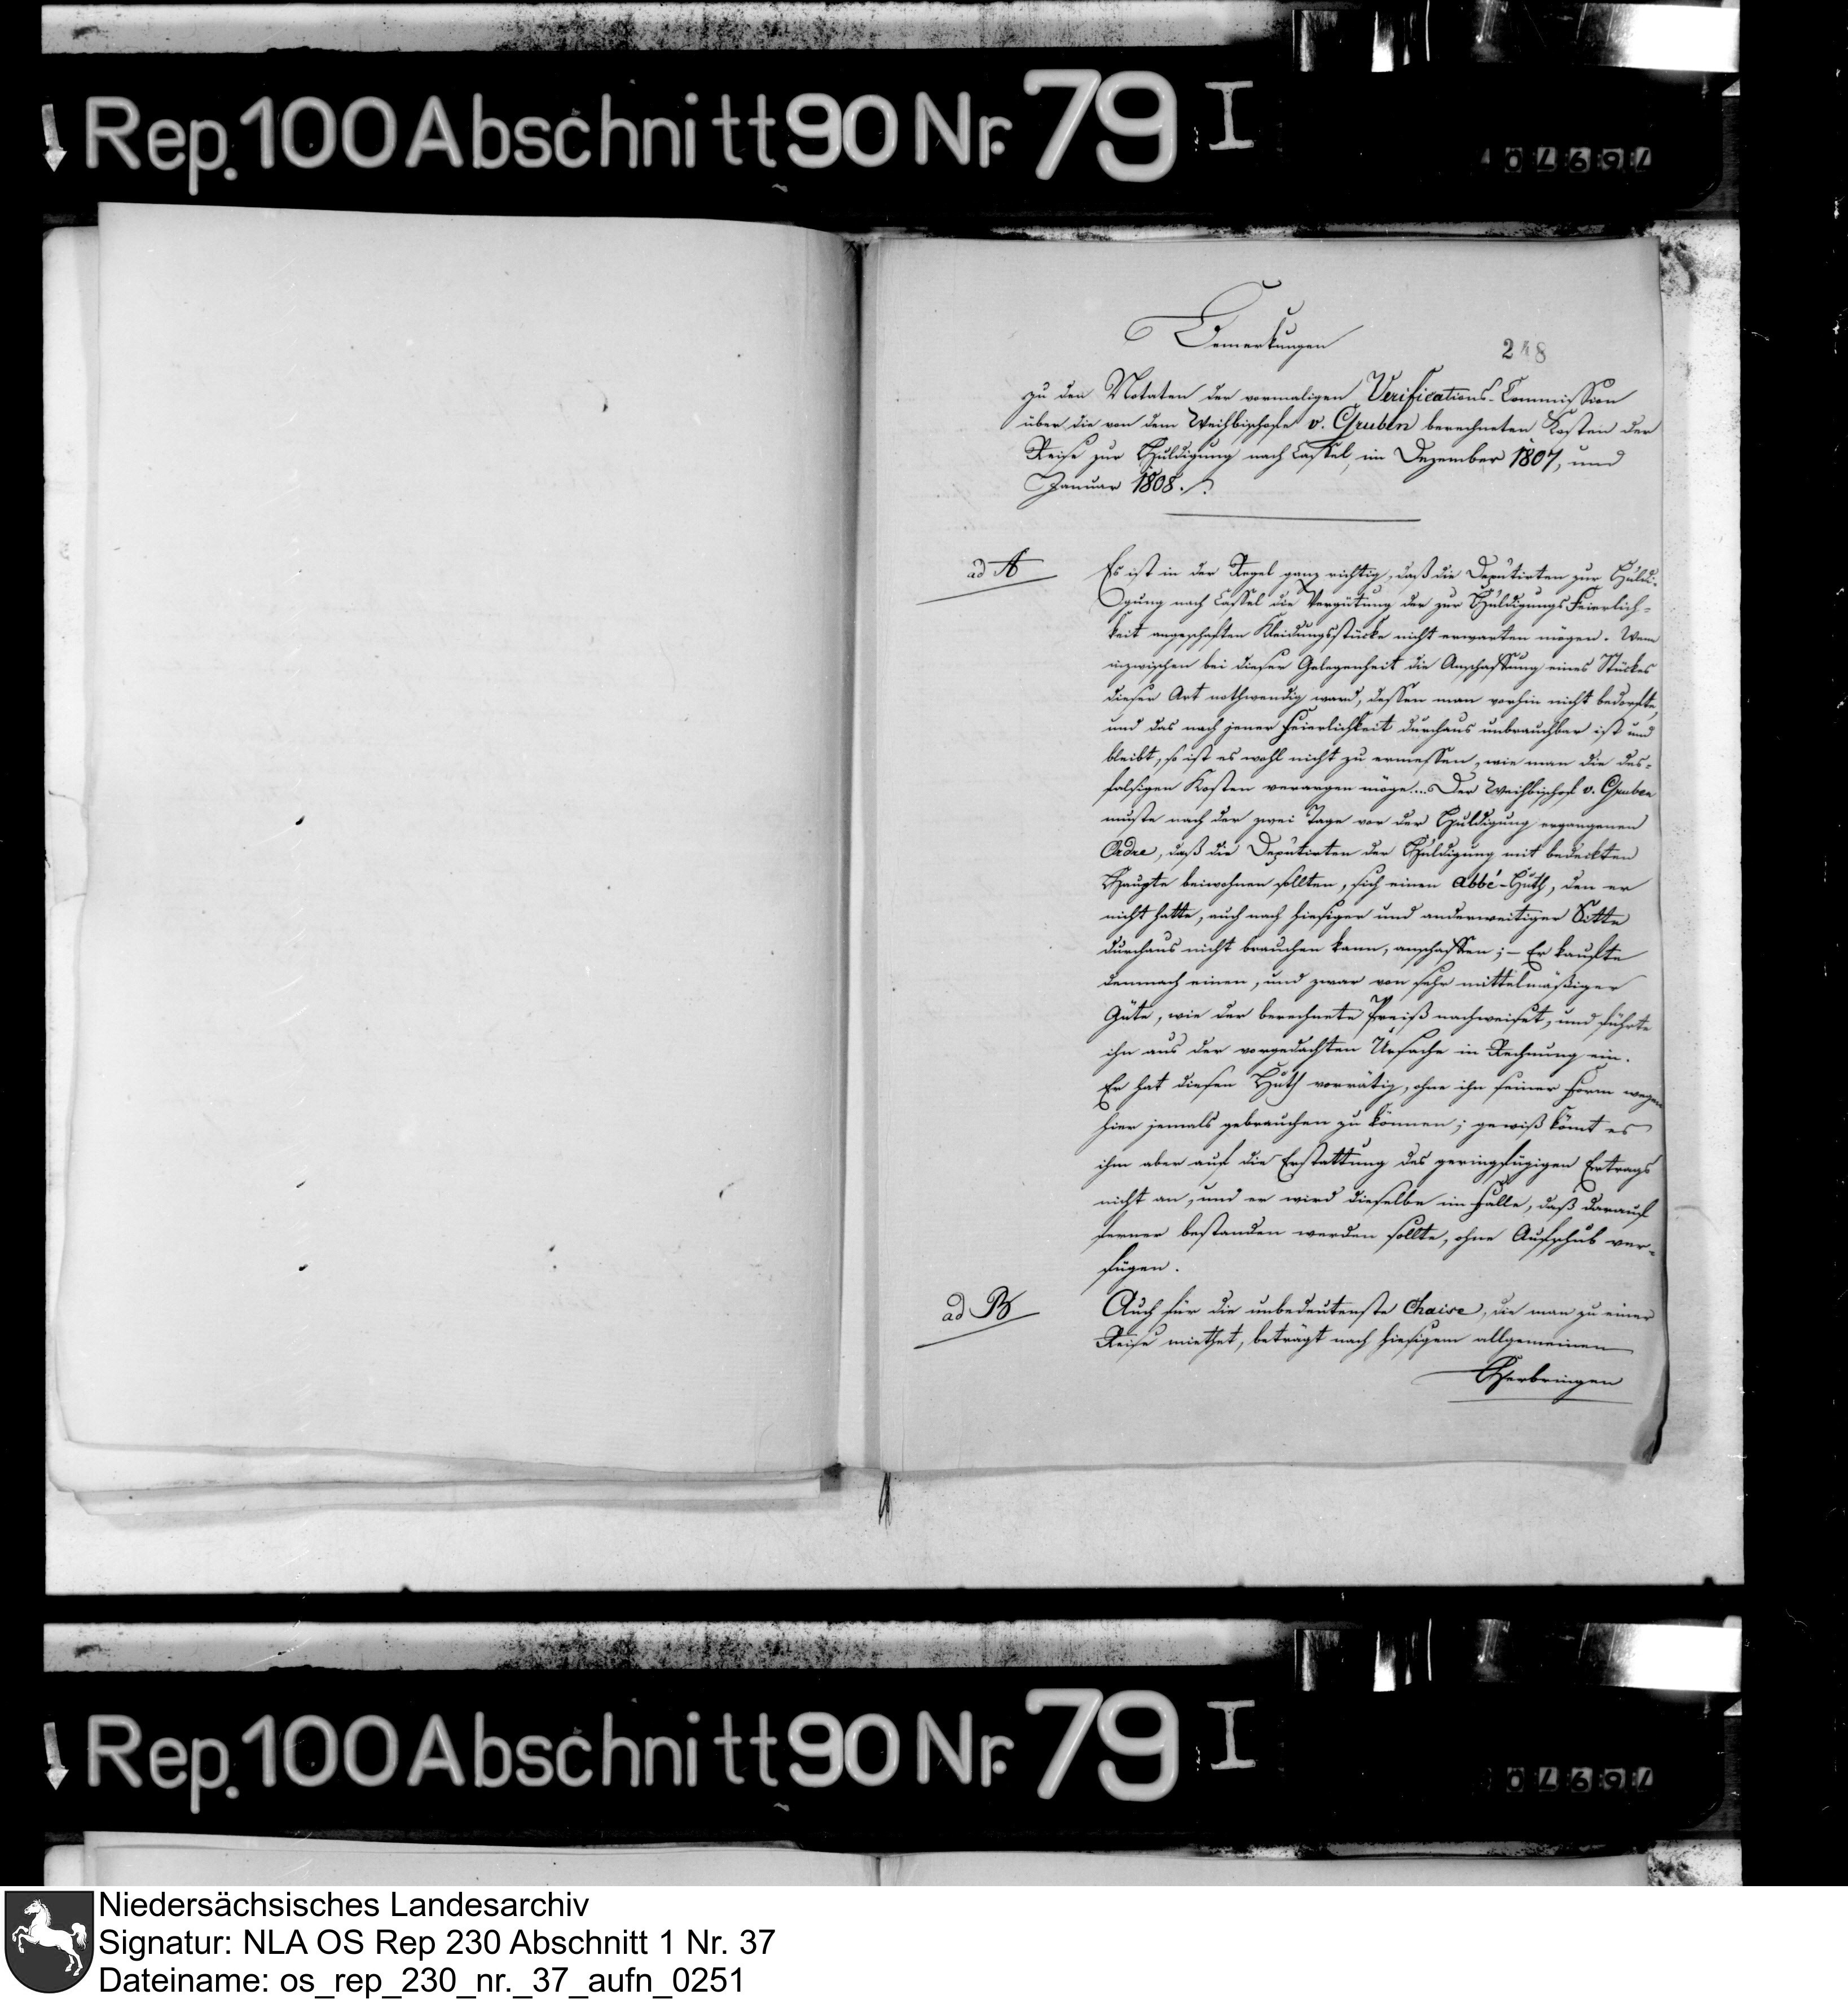 Rep. 100 Abschnitt 90 Nr. 79 I
Bemerkungen
248
zu den Notaten der vormaligen Verifications-Commission
über die von dem Weihbischofe v. Gruben berechneten Kosten der
Reise zur Huldigung nach Cassel, im Dezember 1807, und
Januar 1808.
ad A
Es ist in der Regel ganz richtig, daß die Deputirten zur Huldi-
gung nach Cassel die Vergütung der zur Huldigungs Feierlich-
keit angeschaften Kleidungsstücke nicht erwarten mögen. Wenn
inzwischen bei dieser Gelegenheit die Anschaffung eines Stückes
dieser Art nothwendig ward, dessen man vorhin nicht bedorfte,
und das nach jener Feierlichkeit durchaus unbrauchbar ist und
bleibt, so ist es wohl nicht zu ermessen, wie man die des-
falsigen Kosten verargen möge... Der Weihbischof v. Gruben
mußte nach der zwei Tage vor der Huldigung ergangenen
Ordre, daß die Deputirten der Huldigung mit bedeckten
Haupte beiwohnen sollten, sich einen abbé-Huth, den er
nicht hatte, auch nach hiesiger und anderweitiger Sitte
durchaus nicht brauchen kann, anschaffen; – Er kaufte
demnach einen, und zwar von sehr mittelmäßiger
Güte, wie der berechnete Preiß nachweiset, und führte
ihn aus der vorgedachten Ursache in Rechnung ein.
Er hat diesen Huth vorrätig, ohne ihn seiner Form wegen
hier jemals gebrauchen zu können; gewiß kömt es
ihm aber auf die Erstattung des geringfügigen Ertrags
nicht an, und er wird dieselbe im Falle, daß darauf
ferner bestanden werden sollte, ohne Aufschub ver-
fügen.
ad B
Auch für die unbedeutenste Chaise, die man zu einer
Reise miethet, beträgt nach hiesigem allgemeinen
Herbringen
Rep. 100 Abschnitt 90 Nr. 79 I
Niedersächsisches Landesarchiv
Signatur: NLA OS Rep 230 Abschnitt 1 Nr. 37
Dateiname: os_rep_230_nr._37_aufn_0251